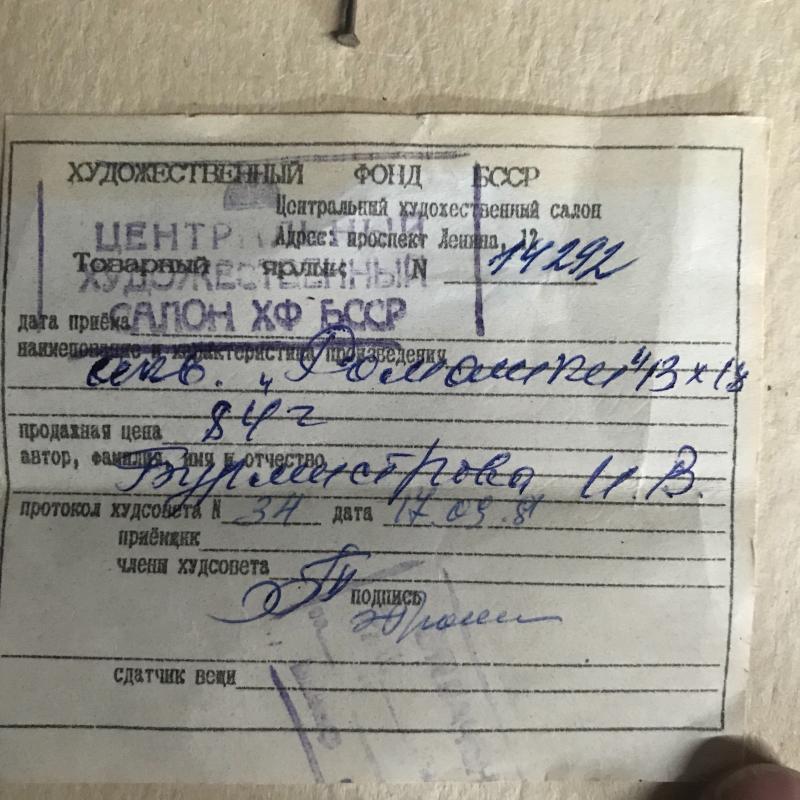 ХУДОЖЕСТВЕННЫЙ ФОНД БССР
Центральный художественный салон
Адрес: проспект Ленина, 12
ЦЕНТРАЛЬНЫЙ
ХУДОЖЕСТВЕННЫЙ
САЛОН ХФ БССР
Товарный ярлык N 14292
дата приёма
наименование и характеристика произведения
акв. "Ромашки" 13 х 18
продажная цена 84 г
автор, фамилия, имя и отчество
Бурмистрова И.В.
протокол худсовета N 34 дата 17.09.
приёмщик
члени худсовета
подпись
сдатчик вещи